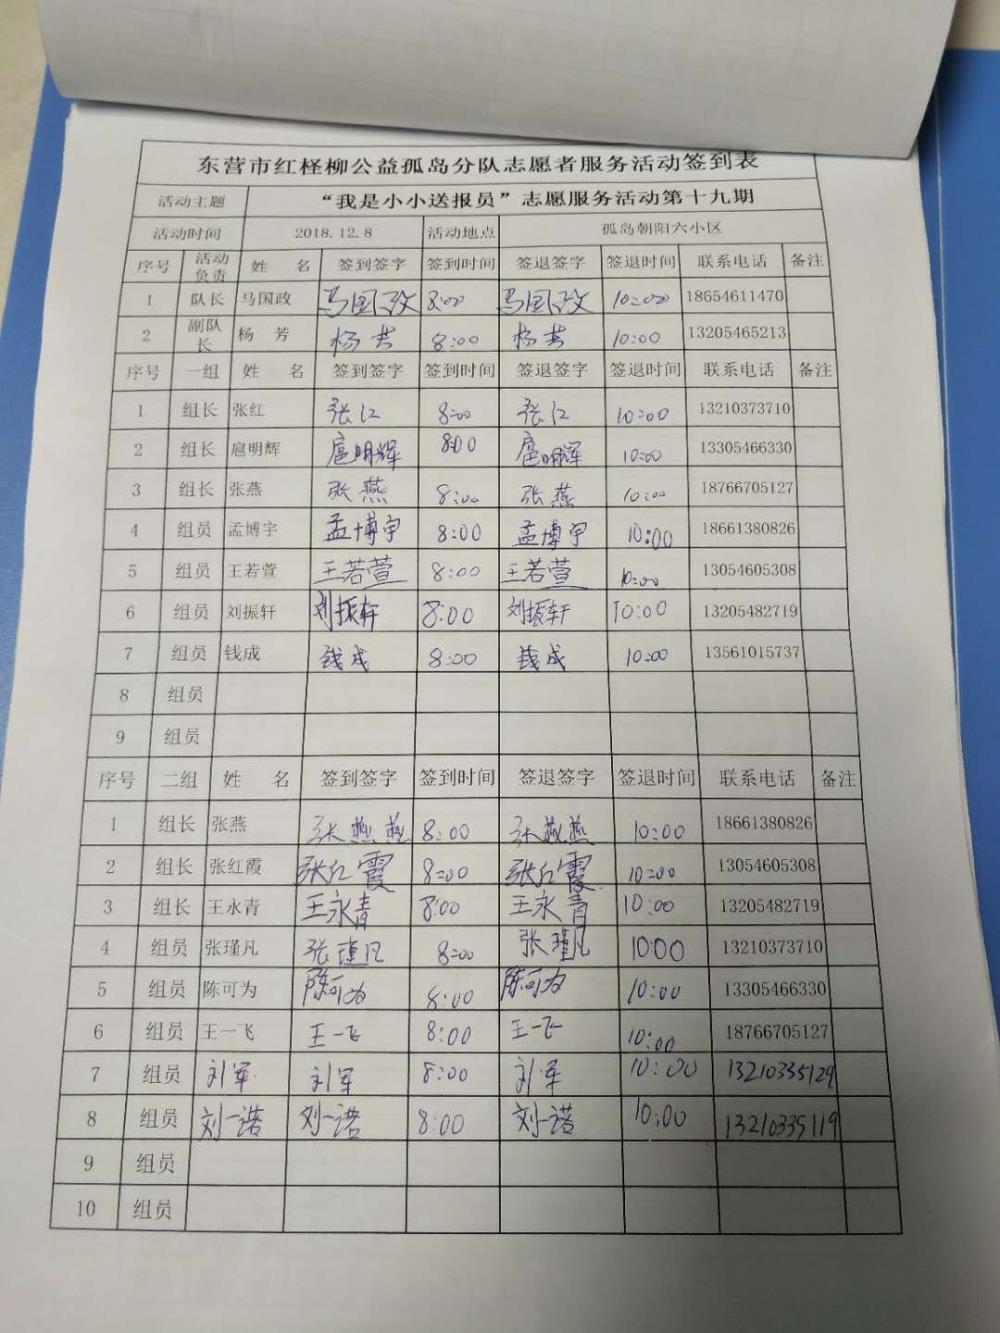 东营市红柽柳公益孤岛分队志愿者服务活动签到表
活动主题 “我是小小送报员”志愿服务活动第十九期
活动时间 2018.12.8 活动地点 孤岛朝阳六小区
序号 活动负责 姓 名 签到签字 签到时间 签退签字 签退时间 联系电话 备注
1 队长 马国政 马国政 8:00 马国政 10:00 18654611470
2 副队长 杨 芳 杨芳 8:00 杨芳 10:00 13205465213
序号 一组 姓 名 签到签字 签到时间 签退签字 签退时间 联系电话 备注
1 组长 张红 张红 8:00 张红 10:00 13210373710
2 组长 扈明辉 扈明辉 8:00 扈明辉 10:00 13305466330
3 组长 张燕 张燕 8:00 张燕 10:00 18766705127
4 组员 孟博宇 孟博宇 8:00 孟博宇 10:00 18661380826
5 组员 王若萱 王若萱 8:00 王若萱 10:00 13054605308
6 组员 刘振轩 刘振轩 8:00 刘振轩 10:00 13205482719
7 组员 钱成 钱成 8:00 钱成 10:00 13561015737
8 组员
9 组员
序号 二组 姓 名 签到签字 签到时间 签退签字 签退时间 联系电话 备注
1 组长 张燕 张燕燕 8:00 张燕燕 10:00 18661380826
2 组长 张红霞 张红霞 8:00 张红霞 10:00 13054605308
3 组长 王永青 王永青 8:00 王永青 10:00 13205482719
4 组员 张瑾凡 张瑾凡 8:00 张瑾凡 10:00 13210373710
5 组员 陈可为 陈可为 8:00 陈可为 10:00 13305466330
6 组员 王一飞 王一飞 8:00 王一飞 10:00 18766705127
7 组员 刘军 刘军 8:00 刘军 10:00 13210335129
8 组员 刘一诺 刘一诺 8:00 刘一诺 10:00 13210335119
9 组员
10 组员